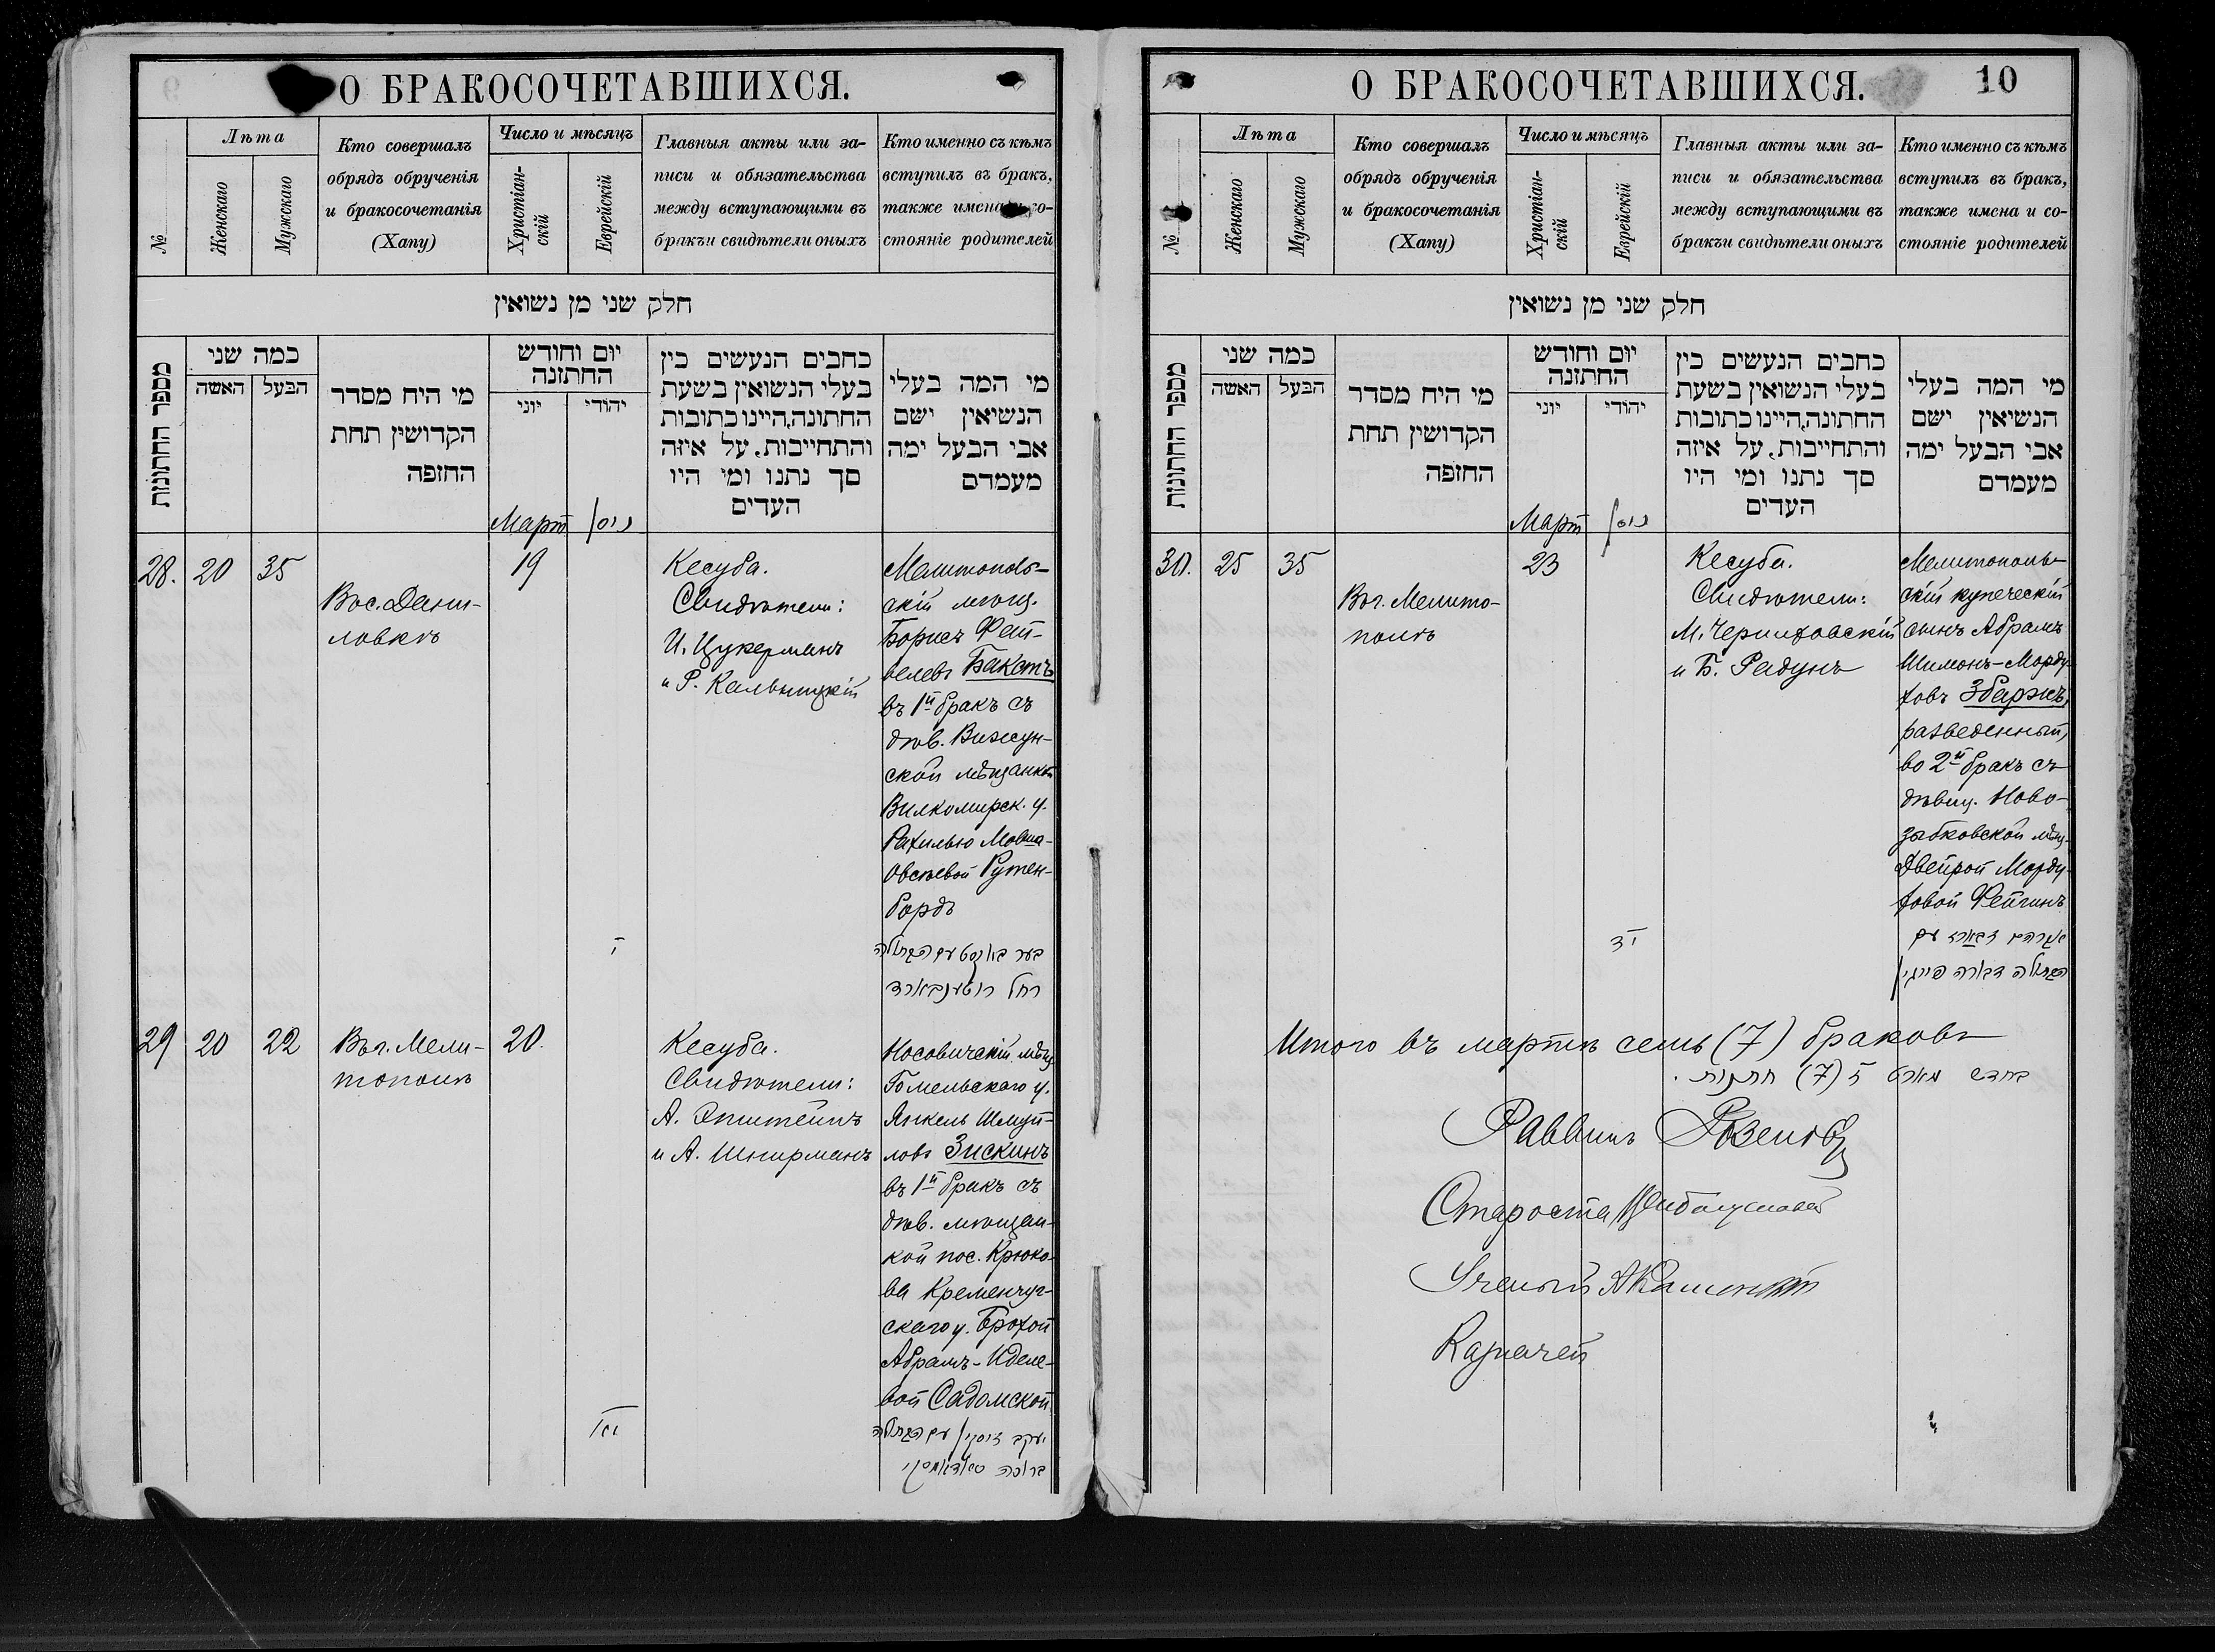 О БРАКОСОЧЕТАВШИХСЯ.
№
Лѣта
Женскаго
Мужскаго
Кто совершалъ
обрядъ обрученія
и бракосочетанія
(Хапу)
Число и мѣсяцъ
Христіан-
скій
Еврейскій
Главныя акты или за-
писи и обязательства
между вступающими въ
бракъи свидѣтели оныхъ
Кто именно съ кѣмъ
вступилъ въ бракъ,
также имена и со-
стояніе родителей
חלק שני מן נשואין
מספר החתונות
כמה שני
האשה
הבעל
מי היח מסדר
הקדושין תחת
החופה
יום וחודש
החתונה
יוני
יהודי
כתבים הנעשים בין
בעלי הנשואין בשעת
החתונה, היינו כתובות
והתחייבות, על איזה
סך נתנו ומי היו
העדים
מי המה בעלי
הנשיאין ישם
אבי הבעל ימה
מעמדם
Мартъ
ניסן
28.
20
35
Въ с. Дани-
ловкѣ
19
Кесуба.
Свидѣтели:
И. Цукерманъ
Мелитополь-
скій мѣщ.
Борисъ Фай-
велевъ Бакстъ
въ 1й бракъ съ
дѣв. Вижун-
ской мѣщанкой
Вилкомирск. у.
Рахилью Мовша-
Овсѣевой Рутен-
бордъ
י
רחל רוטענבארד
29
20
22
Въ г. Мели-
тополѣ
20.
Кесуба.
Свидѣтели:
А. Эпштейнъ
и А. Шнирманъ
Носовичскій мѣщ.
Гомельскаго у.
Янкель Шмуй-
ловъ Зискинъ
въ 1й бракъ съ
дѣв. мѣщан-
кой пос. Крюко-
ва Кременчуг-
скаго у. Брохой
Абрамъ-Иделе-
вой Садомской
יעקב זיסקין עם הבתולה
ברכה סאדאמסקי
О БРАКОСОЧЕТАВШИХСЯ.
10
№
Лѣта
Женскаго
Мужскаго
Кто совершалъ
обрядъ обрученія
и бракосочетанія
(Хапу)
Число и мѣсяцъ
Христіан-
скій
Еврейскій
Главныя акты или за-
писи и обязательства
между вступающими въ
бракъи свидѣтели оныхъ
Кто именно съ кѣмъ
вступилъ въ бракъ,
также имена и со-
стояніе родителей
חלק שני מן נשואין
מספר החתונות
כמה שני
האשה
הבעל
מי היח מסדר
הקדושין תחת
החופה
יום וחודש
החתונה
יוני
יהודי
כתבים הנעשים בין
בעלי הנשואין בשעת
החתונה, היינו כתובות
והתחייבות, על איזה
סך נתנו ומי היו
העדים
מי המה בעלי
הנשיאין ישם
אבי הבעל ימה
מעמדם
Мартъ
ניסן
30.
25
35
Въ г. Мелито-
полѣ
23
Кесуба.
Свидѣтели:
М. Чериховскій
и Б. Радунъ
Мелитополь-
скій купеческій
сынъ Абрамъ
Шимонъ-Морду-
ховъ Збаржъ,
разведенный,
во 2й бракъ съ
дѣвиц. Ново-
зыбковской мѣщ.
Двейрой Морду-
ховой Фейгинъ
יד
הבתולה דבורה פייגין
Итого въ мартѣ семь (7) браковъ
בחדש מארט ז (7) חתונות.
Раввинъ
Староста
Ученый
Казначей